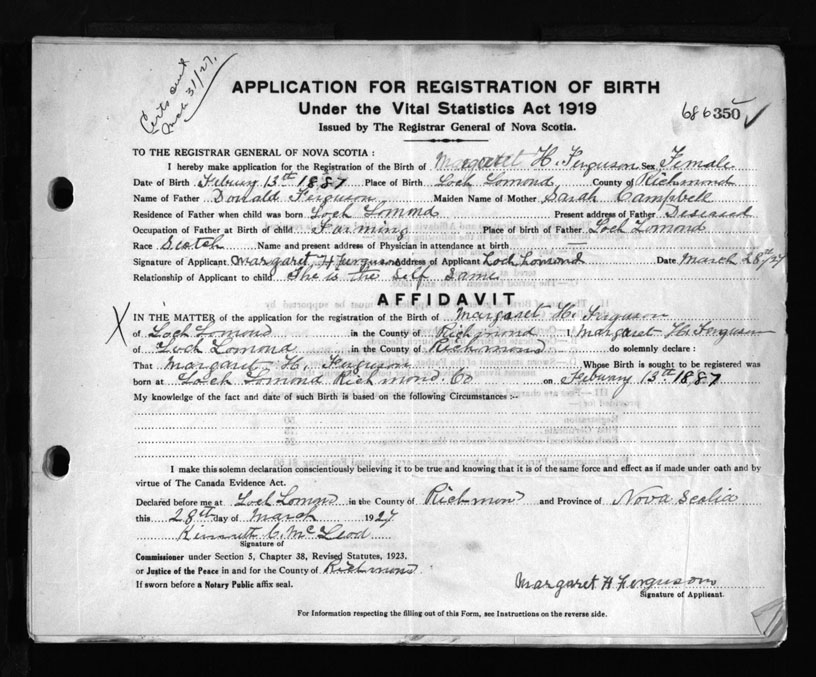 Certs sent
Mch 31/27.
APPLICATION FOR REGISTRATION OF BIRTH
Under the Vital Statistics Act 1919
686350
Issued by The Registrar General of Nova Scotia.
TO THE REGISTRAR GENERAL OF NOVA SCOTIA:
I hereby make application for the Registration of the Birth of Margaret H. Ferguson Sex Female
Date of Birth Febuary 13th 1887 Place of Birth Loch Lomond County of Richmond
Name of Father Donald Ferguson Maiden Name of Mother Sarah Campbell
Residence of Father when child was born Loch Lomond Present address of Father Desesed
Occupation of Father at Birth of child Farming Place of birth of Father Loch Lomond
Race Scotch Name and present address of Physician in attendance at birth —
Signature of Applicant Margaret H Ferguson Address of Applicant Loch Lomond Date March 28th/27
Relationship of Applicant to child She is the Self Same
AFFIDAVIT
X
IN THE MATTER of the application for the registration of the Birth of Margaret H. Ferguson
of Loch Lomond in the County of Richmond I, Margaret H. Ferguson
of Loch Lomond in the County of Richmond do solemnly declare:
That Margaret H. Ferguson Whose Birth is sought to be registered was
born at Loch Lomond Richmond. Co on Febuary 13th 1887
My knowledge of the fact and date of such Birth is based on the following Circumstances:-
I make this solemn declaration conscientiously believing it to be true and knowing that it is of the same force and effect as if made under oath and by
virtue of The Canada Evidence Act.
Declared before me at Loch Lomond in the County of Richmond and Province of Nova Scotia
this 28th day of March 1927
Kenneth C. McLeod
Signature of
Commissioner under Section 5, Chapter 38, Revised Statutes, 1923.
or Justice of the Peace in and for the County of Richmond
If sworn before a Notary Public affix seal.
Margaret H Ferguson
Signature of Applicant.
For Information respecting the filling out of this Form, see Instructions on the reverse side.